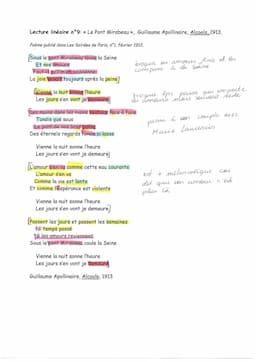 Lecture linéaire n°9: « Le Pont Mirabeau », Guillaume Apollinaire, Alcools, 1913.
Poème publié dans Les Soirées de Paris, n°1, février 1912.
[Sous le pont Mirabeau coule la Seine
Et nos amours
Faut-il qu'il m'en souvienne
La joie venait toujours après la peine]
Vienne la nuit sonne l'heure
Les jours s'en vont je demeure]
[Les mains dans les mains restons face à face
Tandis que sous
Le pont de nos bras passe
Des éternels regards l'onde si lasse
Vienne la nuit sonne l'heure
Les jours s'en vont je demeure]
[L'amour s'en va comme cette eau courante
L'amour s'en va
Comme la vie est lente
Et comme l'Espérance est violente
Vienne la nuit sonne l'heure
Les jours s'en vont je demeure]
[Passent les jours et passent les semaines
Ni temps passé
Ni les amours reviennent
Sous le pont Mirabeau coule la Seine
Vienne la nuit sonne l'heure
Les jours s'en vont je demeure]
Guillaume Apollinaire, Alcools, 1913
amour
compare à la Seine
temps qui
parle à son couple avec
Marie Laurencin
est + mélancolique
dit que son amour est